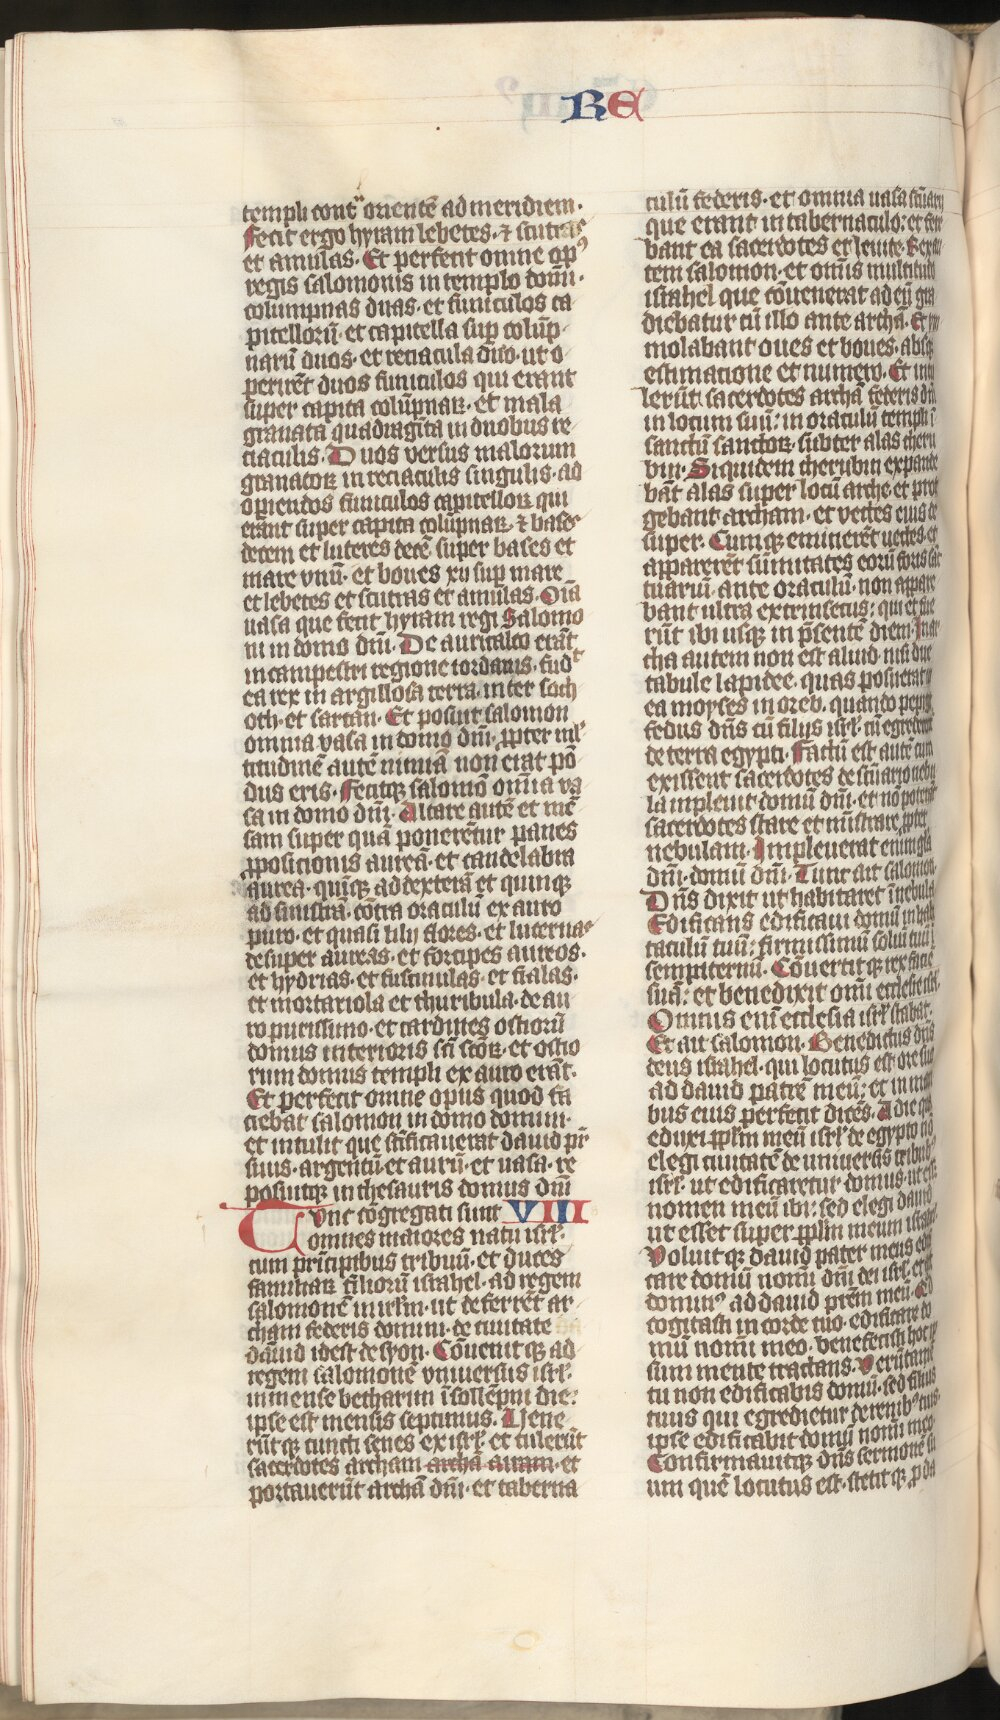 RE
templi cont̄ orientē ad meridiem·
Fecit ergo hyram lebetes· ⁊ scutras
et amulas· Et perfecit omne opꝰ
regis salomonis in templo dom̄i·
columpnas duas· et funiculos ca
pitellorū· et capitella suꝑ colūp
narū duos· et reciacula duo· ut o
perirēt duos funiculos qui erant
super capita colūpnaꝝ· et mala
granata quadragīta in duobus re
ciaculis· Duos versus malorum
granatoꝝ in reciaculis singulis· ad
oꝑiendos funiculos capitelloꝝ qui
erant super capita colūpnaꝝ· ⁊ bases
decem et luteres decē super bases et
mare vnū· et boues xii suꝑ mare
et lebetes et scutras et amulas· Oīa
uasa que fecit hyram regi Salomo
ni in domo dn̄i· De auricalco erāt
in campestri regione iordanis· fudᵗ
ea rex in argillosa terra· inter soch
oth· et sartan· Et posuit salomon
omnia vasa in domo dn̄i· ꝓpter ml̄
titudinē autē nimiā non erat pō
dus eris· Fecitꝙ salomō om̄ia va
sa in domo dn̄i· Altare autē et mē
sam super quā ponerētur panes
ꝓpositionis aureā· et candelabra
aurea· quīꝙ ad dexterā et quinꝙ
ad sinistrā· cōtra oraculū ex auro
puro· et quasi lilij flores· et lucernas
desuper aureas· et forcipes aureos·
et hydrias· et fuscinulas· et fialas·
et mortariola et thuribula· de au
ro purissimo· et cardines ostiorū
domus interioris sc̄i sc̄oꝝ· et ostio
rum domus templi ex auro erāt·
Et perfecit omne opus quod fa
ciebat salomon in domo domini·
et intulit que sc̄ificauerat dauid pr̄
suus· argentū et aurū· et uasa· re
posuitꝙ in thesauris domus dn̄i
Tvnc cōgregati sunt VIII
omnes maiores natu isrł·
cum prīcipibus tribuū· et duces
familiaꝝ filiorū israhel· ad regem
salomonē in irłm· ut deferrēt ar
cham federis domini· de ciuitate
dauid id est de syon· Cōuenitꝙ ad
regem salomonē vniuersus isrł·
in mense betharim ī sollēpni die:
ipse est mensis septimus· Uene
rūtꝙ cuncti senes ex isrł· et tulerūt
sacerdotes archam archā auram· et
portauerūt archā dn̄i· et taberna
culū federis· et omnia uasa sc̄uarij
que erant in tabernaculo: et fere
bant ea sacerdotes et leuite· Rex au
tem salomon· et om̄is multitudo
israhel que cōuenerat ad eū gra
diebatur cū illo ante archā· Et ym
molabant oues et boues· absꝙ
estimatione et numero· Et intu
lerūt sacerdotes archā federis dn̄i
in locum suū: in oraculū templi ī
sanctū sanctoꝝ· subter alas cheru
bin· Siquidem cherubin expande
bāt alas super locū arche· et prot
gebant archam· et vectes eius de
super· Cumꝙ eminerēt uectes· et
apparerēt sūmitates eorū foris sāc
tuariū ante oraculū· non appare
bant ultra extrinsecus: qui et fue
rūt ibi usꝙ in p̄sentē diem· In ar
cha autem non est aliud· nisi due
tabule lapidee· quas posuerat ī
ea moyses in oreb· quando pepigᵗ
fedus dn̄s cū filijs isrł· cū egrederent
de terra egypti· Factū est autē cum
exissent sacerdotes de sc̄uario nebu
la impleuit domū dn̄i· et nō poterāt
sacerdotes stare et mīstrare ꝓpter
nebulam· Impleuerat enim gl̄a
dn̄i· domū dn̄i· Tunc ait salomon·
Dn̄s dixit ut habitaret ī nebula
Edificans edificaui domū in habi
taculū tuū: firmissimū soliū tuū ī
sempiternū· Cōuertitꝙ rex faciē
suā: et benedixit om̄i ecclesie isrł·
Omnis enī ecclesia isrł stabat·
Et ait salomon· Benedictus dn̄s
deus israhel· qui locutus est ore suo
ad dauid patrē meū: et in mani
bus eius perfecit dicēs· A die qua
eduxi ꝓplm meū isrł de egypto nō
elegi ciuitatē de uniuersis tribubꝰ
isrł· ut edificaretur domus· ut eēt
nomen meū ibi: sed elegi dauid
ut esset super ꝓplm meum israhel·
Voluitꝙ dauid pater meus edi
care domū nomī dn̄i dei isrł· et ait
dominꝰ ad dauid prēm meū· Qd̄
cogitasti in corde tuo· edificare do
mū nomī meo· benefecisti hoc ip
sum mente tractans· Verūtamē
tu non edificabis domū· sed filius
tuus qui egredietur de renibꝰ tuis·
ipse edificabit domū nomī meo·
Confirmauitꝙ dn̄s sermonē su
um quē locutus est· stetitꝙ ꝓ da